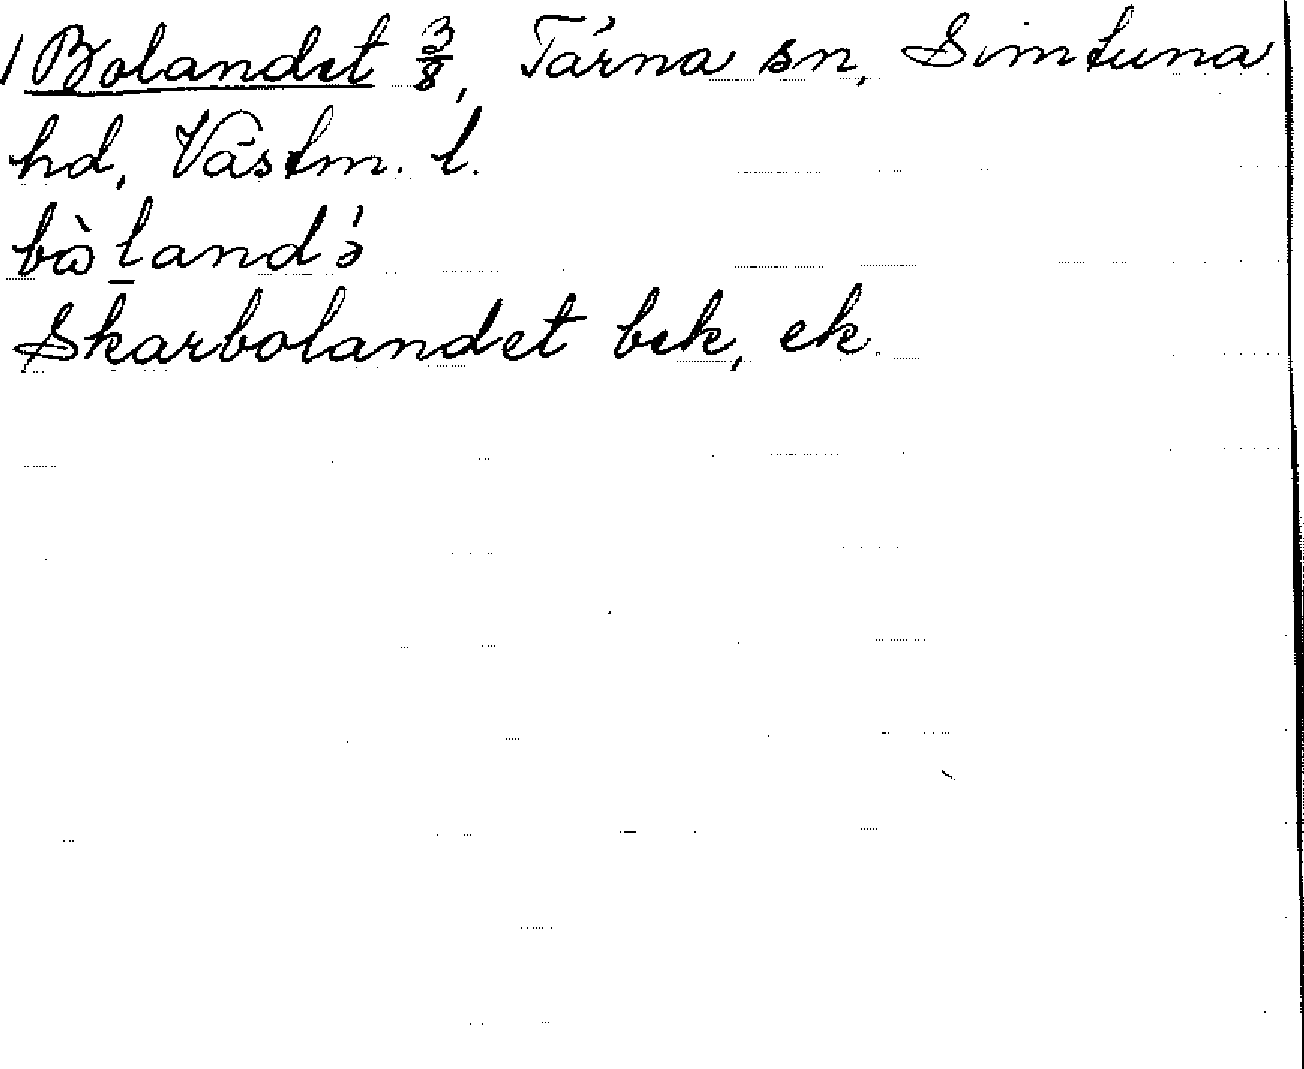 1 Bolandet 3/8, Tärna sn, Simtuna
hd, Västm. l.
bὼḻandə́
Skarbolandet bek, ek.